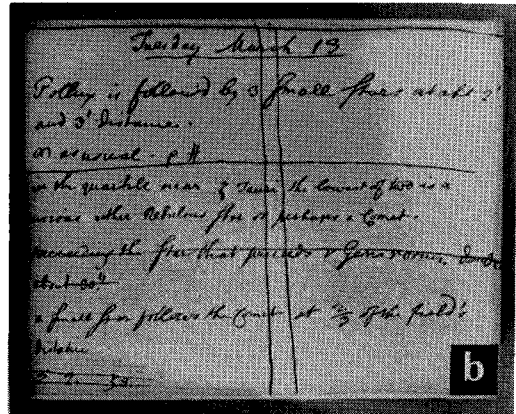 Tuesday March 13
Pollux is followed by 3 small stars at abt 2'
and 3' distance.
as usual. p #
in the quartile near ζ Tauri the lowest of two is a
curious either Nebulous star or perhaps a Comet.
preceeding the star that precedes Geminorum
about 30"
a small star follows the Comet at 2/3 of the field's
distance
b